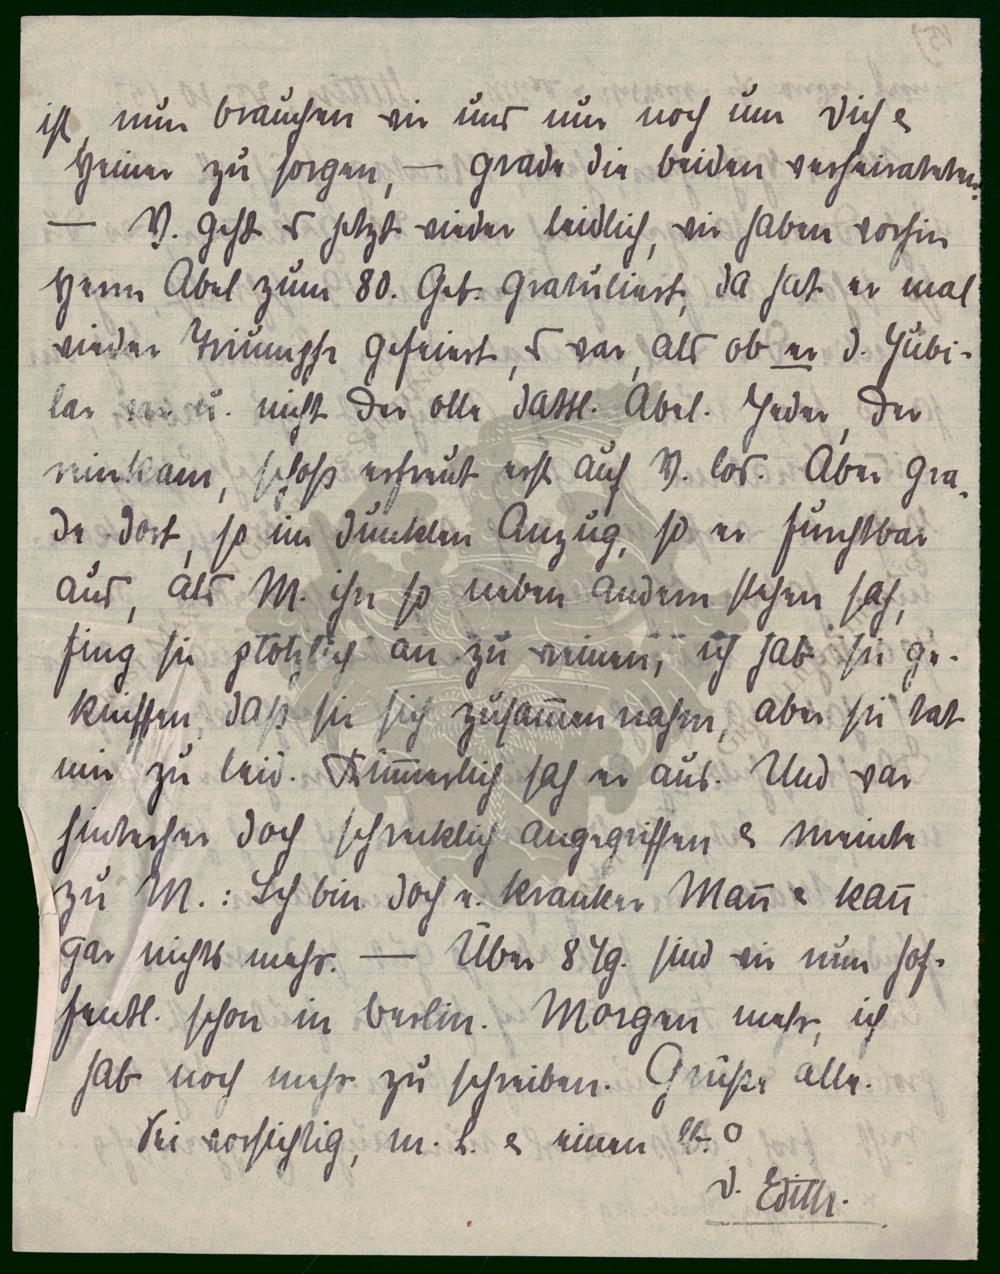 ist, nun brauchen wir uns nur noch um Dich &
Heiner zu sorgen, — grade die beiden verheirateten.
— V. geht es jetzt wieder leidlich, wir haben vorhin
Herrn Abel zum 80. Geb. gratuliert, da hat er mal
wieder Triumphe gefeiert, es war, als ob er d. Jubi-
lar war u. nicht der olle Abel. Jeder, der
reinkam, schoss erfreut erst auf V. los. Aber gra-
de dort, so im dunklen Anzug, so er furchtbar
aus, als M. ihn so neben andern stehen sah,
fing sie plötzlich an zu weinen, ich hab sie ge-
kniffen, daß sie sich zusam̅en nahm, aber sie tat
mir zu leid. Küm̅erlich sah er aus. Und war
hinterher doch schrecklich angegriffen & meinte
zu M.: Ich bin doch e. kranker Man̅ & kan̅
gar nichts mehr. — Über 8 Tg. sind wir nun hof-
fentl. schon in Berlin. Morgen mehr, ich
hab noch mehr zu schreiben. Grüße alle.
Sei vorsichtig, m. L. & einen
D. Edith.